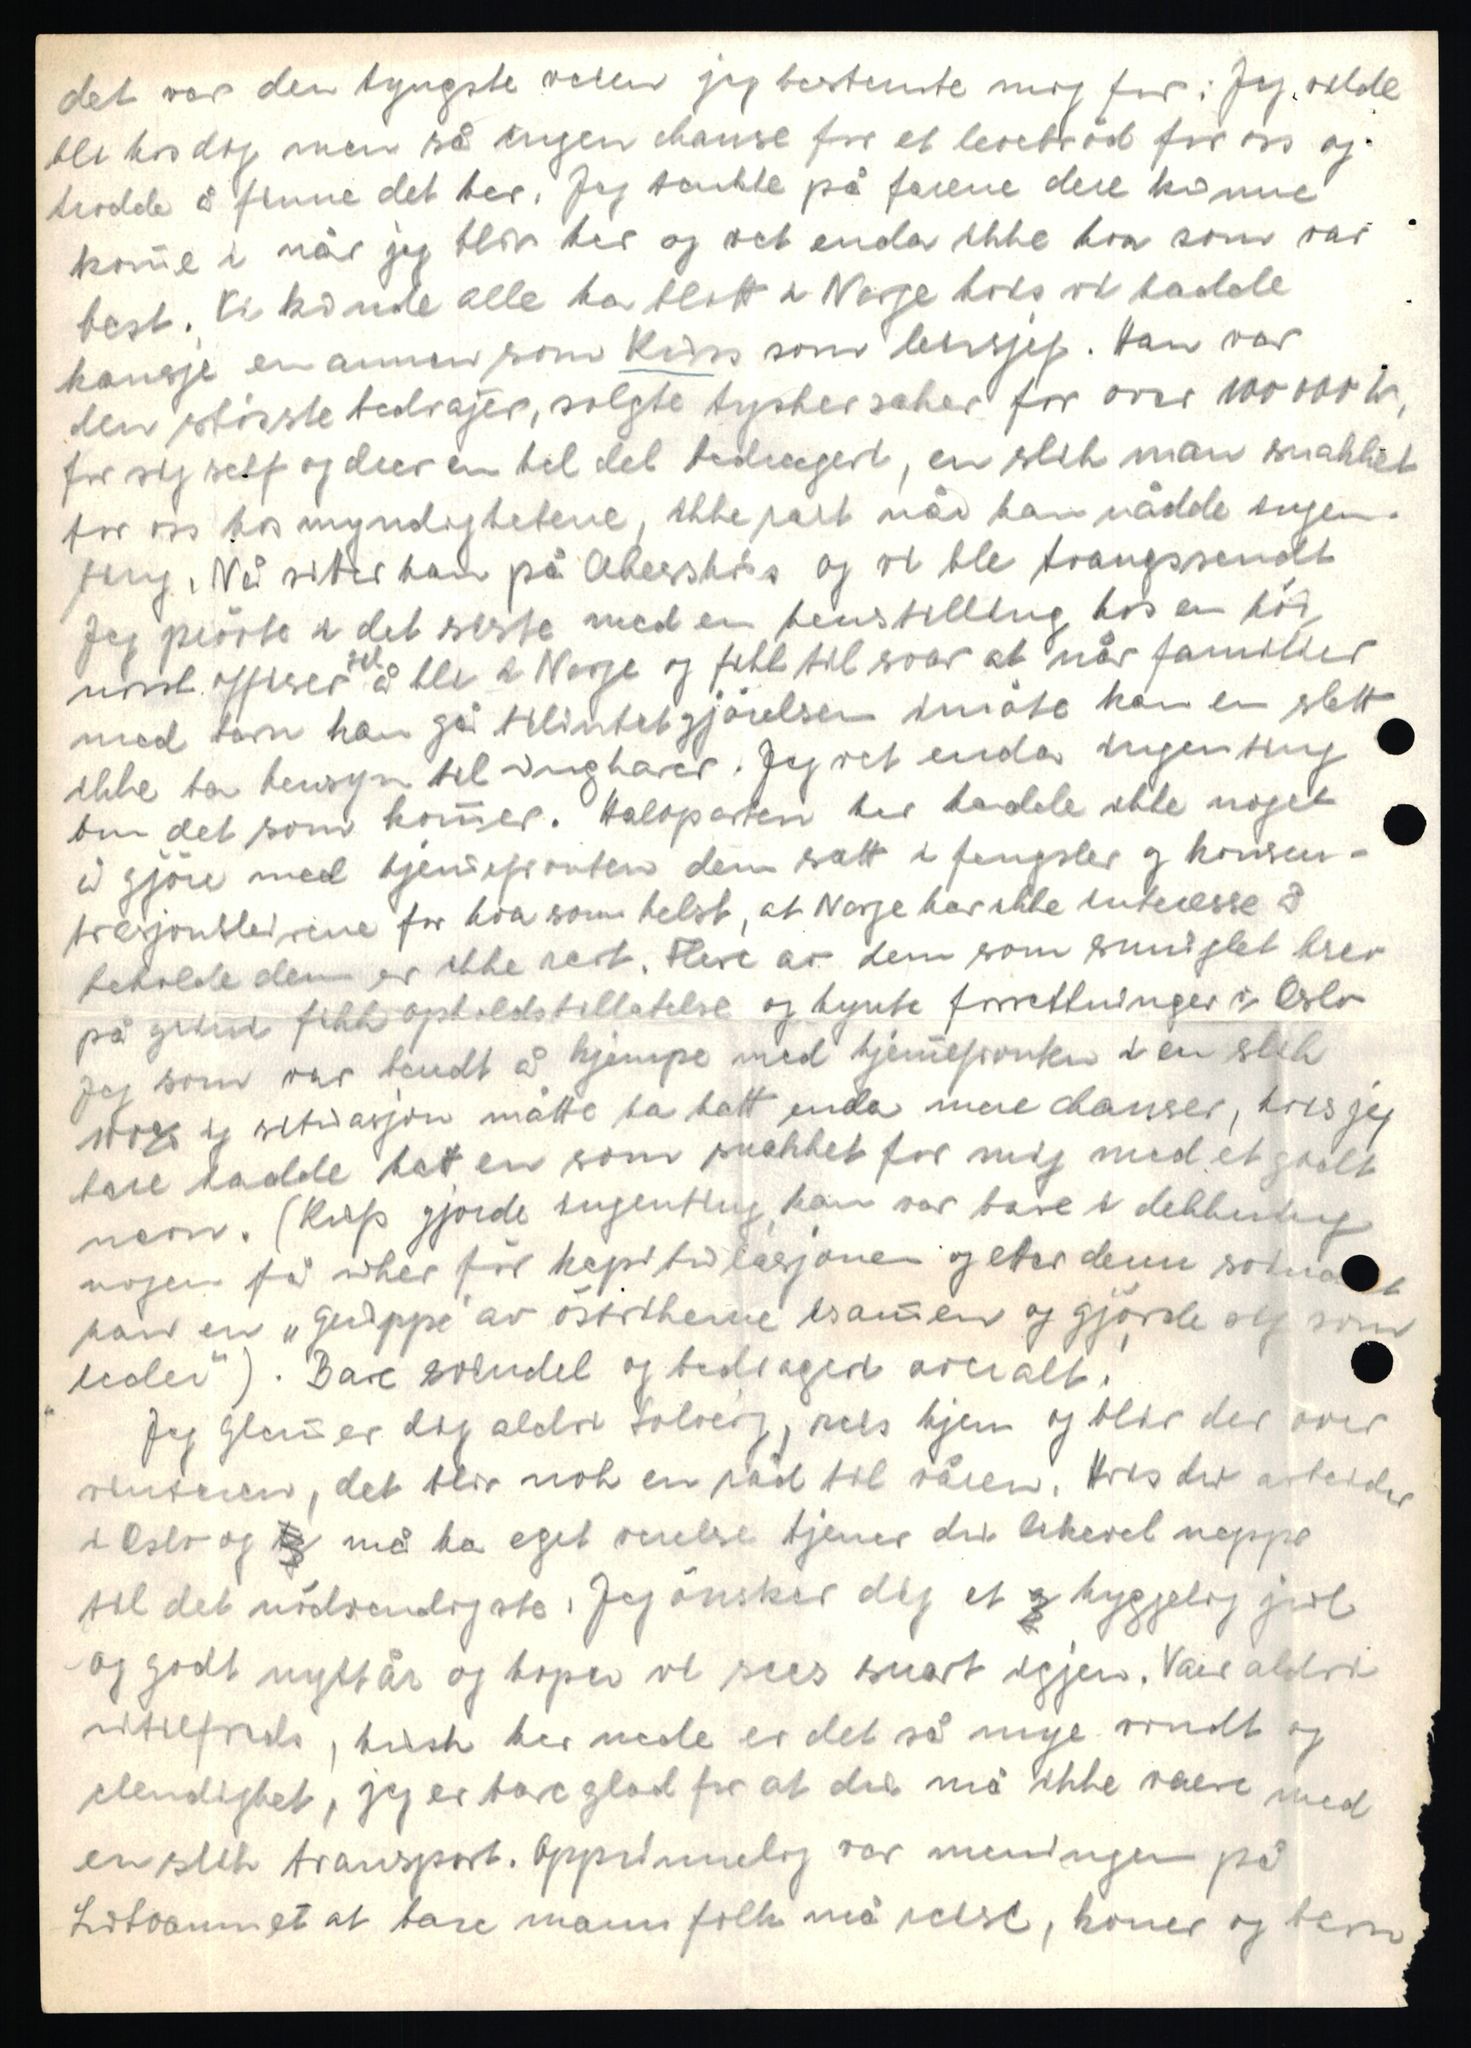 det var den tyngste veien jeg bestemte mig for. Jeg vilde
bli hos dig men så ingen chanse for et levebröd for oss og
trodde å finne det her. Jeg tenkte på farene dere kunne
kom̄e i når jeg blir her og vet enda ikke hva som var
best. Vi kunde alle ha blitt i Norge hvis vi hadde
kansje en annen som Kuss som leirsjef. Han var
den störste bedrajer, solgte tyskersaker for over 100 000 kr,
for sig self og drev en hel del bedrageri, en slik man snakket
for oss hos myndighetene, ikke rart når han nådde ingen-
ting. Nå siter han på Akershus og vi ble tvangssendt
Jeg prövte i det siste med en henstilling hos en höi
norsk offiser til å bli i Norge og fikk til svar at når familier
med barn kan gå tilintetgjörelsen imöte kan en slett
ikke ta hensyn til ungkarer. Jeg vet enda ingenting
om det som kom̄er. Halvparten her hadde ikke noget
å gjöre med hjem̄efronten dem satt i fengsler og konsen-
trasjonsleirene for hva som helst, at Norge har ikke interesse å
beholde dem er ikke rart. Flere av dem som smuglet brev
på grini fikk opholdstillatelse og bynte forretninger i Oslo
Jeg som var tendt å kjempe med hjem̄efronten i en slik
situasjon måtte ha hatt enda mere chanser, hvis jeg
bare hadde hatt en som snakket for mig med et godt
navn. (Kuss gjorde ingenting, han var bare i dekkning
nogen få uker för kapitulasjonen og etter denn
han en „gruppe" av östrikerne sam̄en og gjorde sig som
leder"). Bare svindel og bedrageri overalt.
Jeg glem̄er dig aldri Solveig, reis hjem og blir der over
vinteren, det blir nok en råd til våren. Hvis du arbeider
i Oslo og må ha eget verelse tjener du likevel neppe
til det nödvendigste. Jeg önsker dig et hyggelig jul
og godt nyttår og hoper vi sees snart igjen. Vær aldri
utilfreds, husk her nede er det så mye vondt og
elendighet, jeg er bare glad for at du må ikke være med
en slik transport. Opprinnelig var meningen på
at bare mannfolk må reise, koner og barn